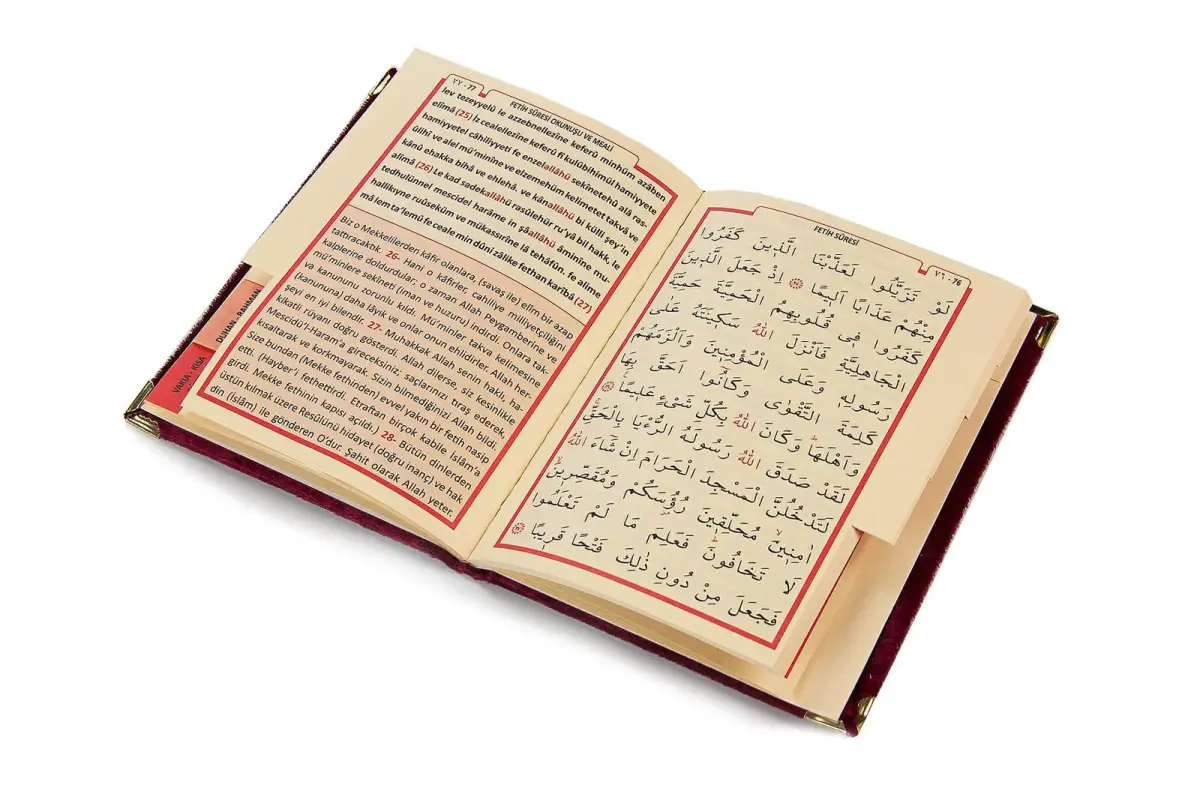 FETİH SÛRESİ
٧٦ - 76
لَوْ تَزَيَّلُوا لَعَذَّبْنَا الَّذ۪ينَ كَفَرُوا
مِنْهُمْ عَذَابًا اَل۪يمًا ﴿٢٥﴾ اِذْ جَعَلَ الَّذ۪ينَ
كَفَرُوا ف۪ى قُلُوبِهِمُ الْحَمِيَّةَ حَمِيَّةَ
الْجَاهِلِيَّةِ فَاَنْزَلَ اللّٰهُ سَك۪ينَتَهُ عَلٰى
رَسُولِه۪ وَعَلَى الْمُؤْمِن۪ينَ وَاَلْزَمَهُمْ
كَلِمَةَ التَّقْوٰى وَكَانُوا اَحَقَّ بِهَا
وَاَهْلَهَا وَكَانَ اللّٰهُ بِكُلِّ شَىْءٍ عَل۪يمًا ﴿٢٦﴾
لَقَدْ صَدَقَ اللّٰهُ رَسُولَهُ الرُّءْيَا بِالْحَقِّ
لَتَدْخُلُنَّ الْمَسْجِدَ الْحَرَامَ اِنْ شَاءَ اللّٰهُ
اٰمِن۪ينَ مُحَلِّق۪ينَ رُؤُسَكُمْ وَمُقَصِّر۪ينَ
لَا تَخَافُونَ فَعَلِمَ مَا لَمْ تَعْلَمُوا
فَجَعَلَ مِنْ دُونِ ذٰلِكَ فَتْحًا قَر۪يبًا ﴿٢٧﴾
٧٧ - 77
FETİH SÛRESİ OKUNUŞU VE MEALİ
lev tezeyyelû le azzebnellezîne keferû minhüm azâben
elîmâ (25) İz cealellezîne keferû fî kulûbihimül hamiyyete
hamiyyetel câhiliyyeti fe enzelallâhü sekînetehû alâ ras-
ûlihî ve alel mü'minîne ve elzemehüm kelimetet takvâ ve
kânû ehakka bihâ ve ehlehâ. ve kânallâhü bi külli şey'in
alîmâ (26) Le kad sadekallâhü rasûlehür ru'yâ bil hakk, le
tedhulünnel mescidel harâme in şâallâhü âminîne mu-
hallikıyne ruûseküm ve mükassırîne lâ tehâfûn. fe alime
mâ lem ta'lemû fe ceale min dûni zâlike fethan karîbâ (27)
Biz o Mekkelilerden kâfir olanlara, (savaş ile) elim bir azap
tattıracaktık. 26- Hani o kâfirler, cahiliye milliyetçiliğini
kalplerine doldurdular; o zaman Allah Peygamberine ve
mü'minlere sekîneti (iman ve huzuru) indirdi. Onlara tak.
va kanununu zorunlu kıldı. Mü'minler takva kelimesine
(kanununa) daha lâyık ve onlar onun ehlidirler. Allah her-
şeyi en iyi bilendir. 27- Muhakkak Allah senin haklı, ha-
kikatli rüyanı doğru gösterdi. Allah dilerse, siz kesinlikle
Mescidü'l-Haram'a gireceksiniz; saçlarınızı tıraş ederek,
kısaltarak ve korkmayarak. Sizin bilmediğinizi Allah bildi.
Size bundan (Mekke fethinden) evvel yakın bir fetih nasip
etti. (Hayber'i fethettirdi. Etraftan birçok kabile İslam'a
girdi. Mekke fethinin kapısı açıldı.) 28- Bütün dinlerden
üstün kılmak üzere Resûlünü hidayet (doğru inanç) ve hak
din (İslâm) ile gönderen O'dur. Şahit olarak Allah yeter.
DUHAN - RAHMAN
VAKIA - KISA